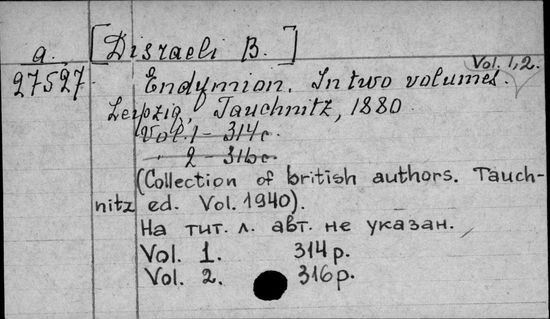 a. [Disraeli B.]
Vol. 1, 2.
27527 Endymion. In two volumes.
Leipzig, Tauchnitz, 1880.
Vol. 1 - 314c.
" 2 - 316c.
(Collection of british authors. Tauch-
nitz ed. Vol. 1940).
На тит. л. авт. не указан.
Vol. 1. 314 p.
Vol. 2. 316 p.